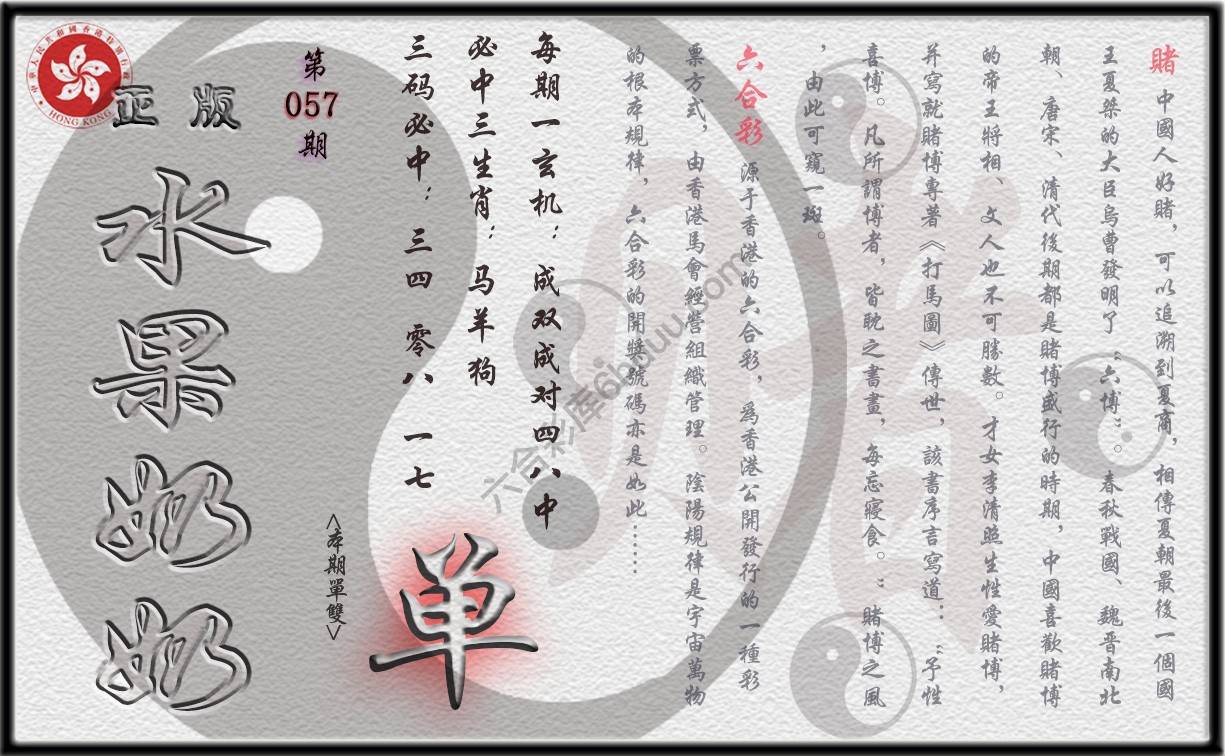 賭 中國人好賭，可以追溯到夏商，相傳夏朝最後一個國
王夏桀的大臣烏曹發明了“六博”。春秋戰國、魏晋南北
朝、唐宋、清代後期都是賭博盛行的時期，中國喜歡賭博
的帝王將相、文人也不可勝數。才女李清照生性愛賭博，
并寫就賭博專著《打馬圖》傳世，該書序言寫道：“予性
喜博。凡所謂博者，皆耽之書畫，每忘寢食。”賭博之風
，由此可窺一斑。
六合彩 源于香港的六合彩，爲香港公開發行的一種彩
票方式，由香港馬會經營組織管理。陰陽規律是宇宙萬物
的根本規律，六合彩的開獎號碼亦是如此……
每期一玄机：成双成对四八中
必中三生肖：马羊狗
三码必中：三四 零八 一七
单
<本期單雙>
第
057
期
正版
水果奶奶
HONG KONG
六合彩库6hduu.com